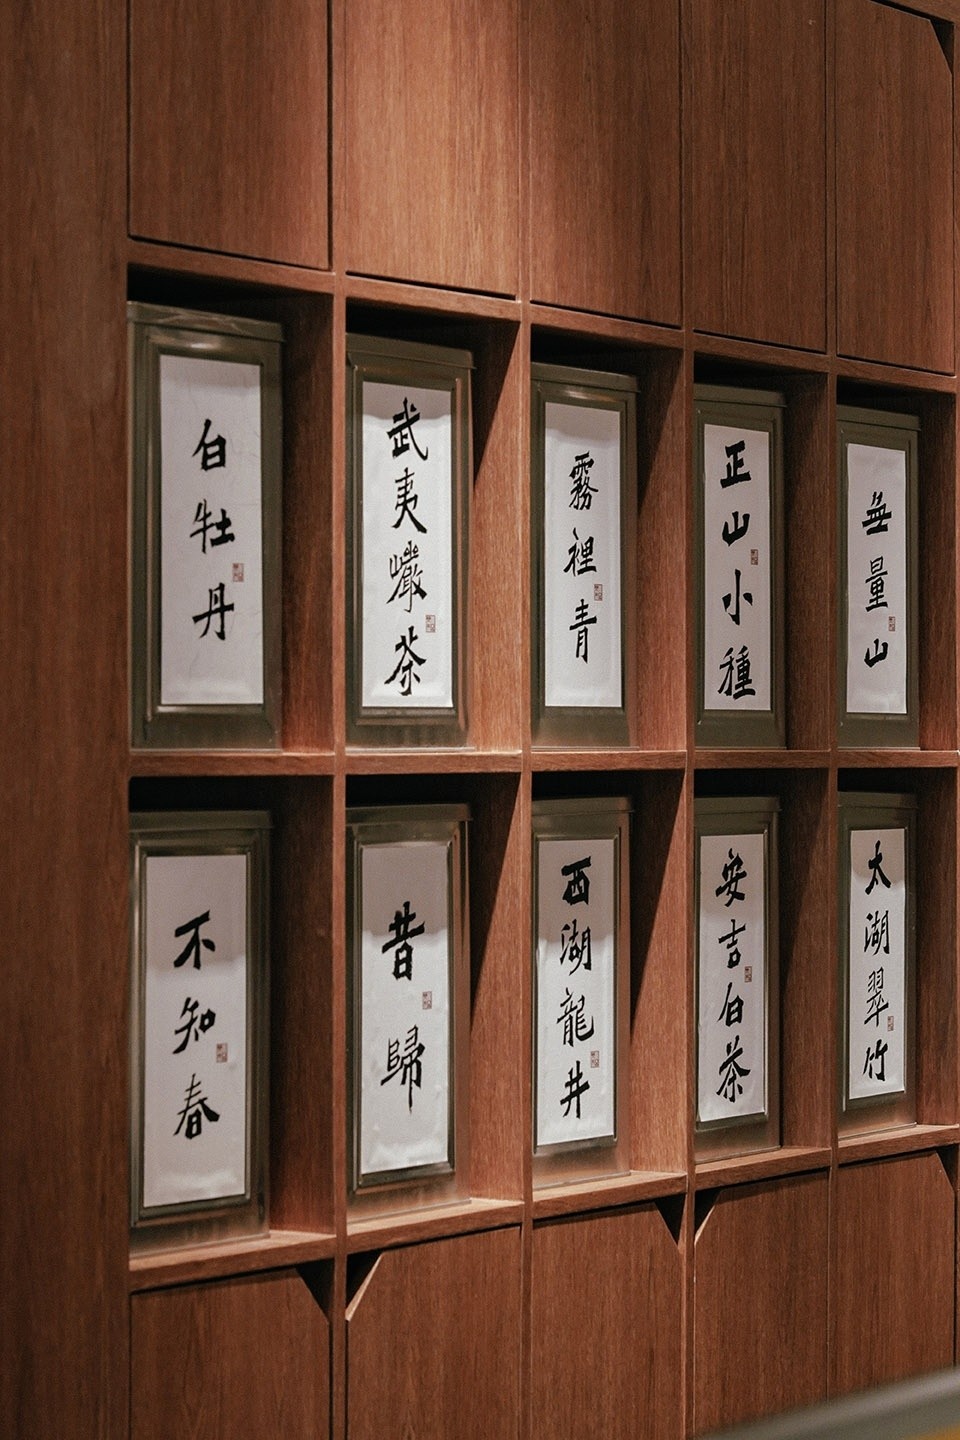 白牡丹
武夷巖茶
霧裡青
正山小種
無量山
不知春
昔歸
西湖龍井
安吉白茶
太湖翠竹